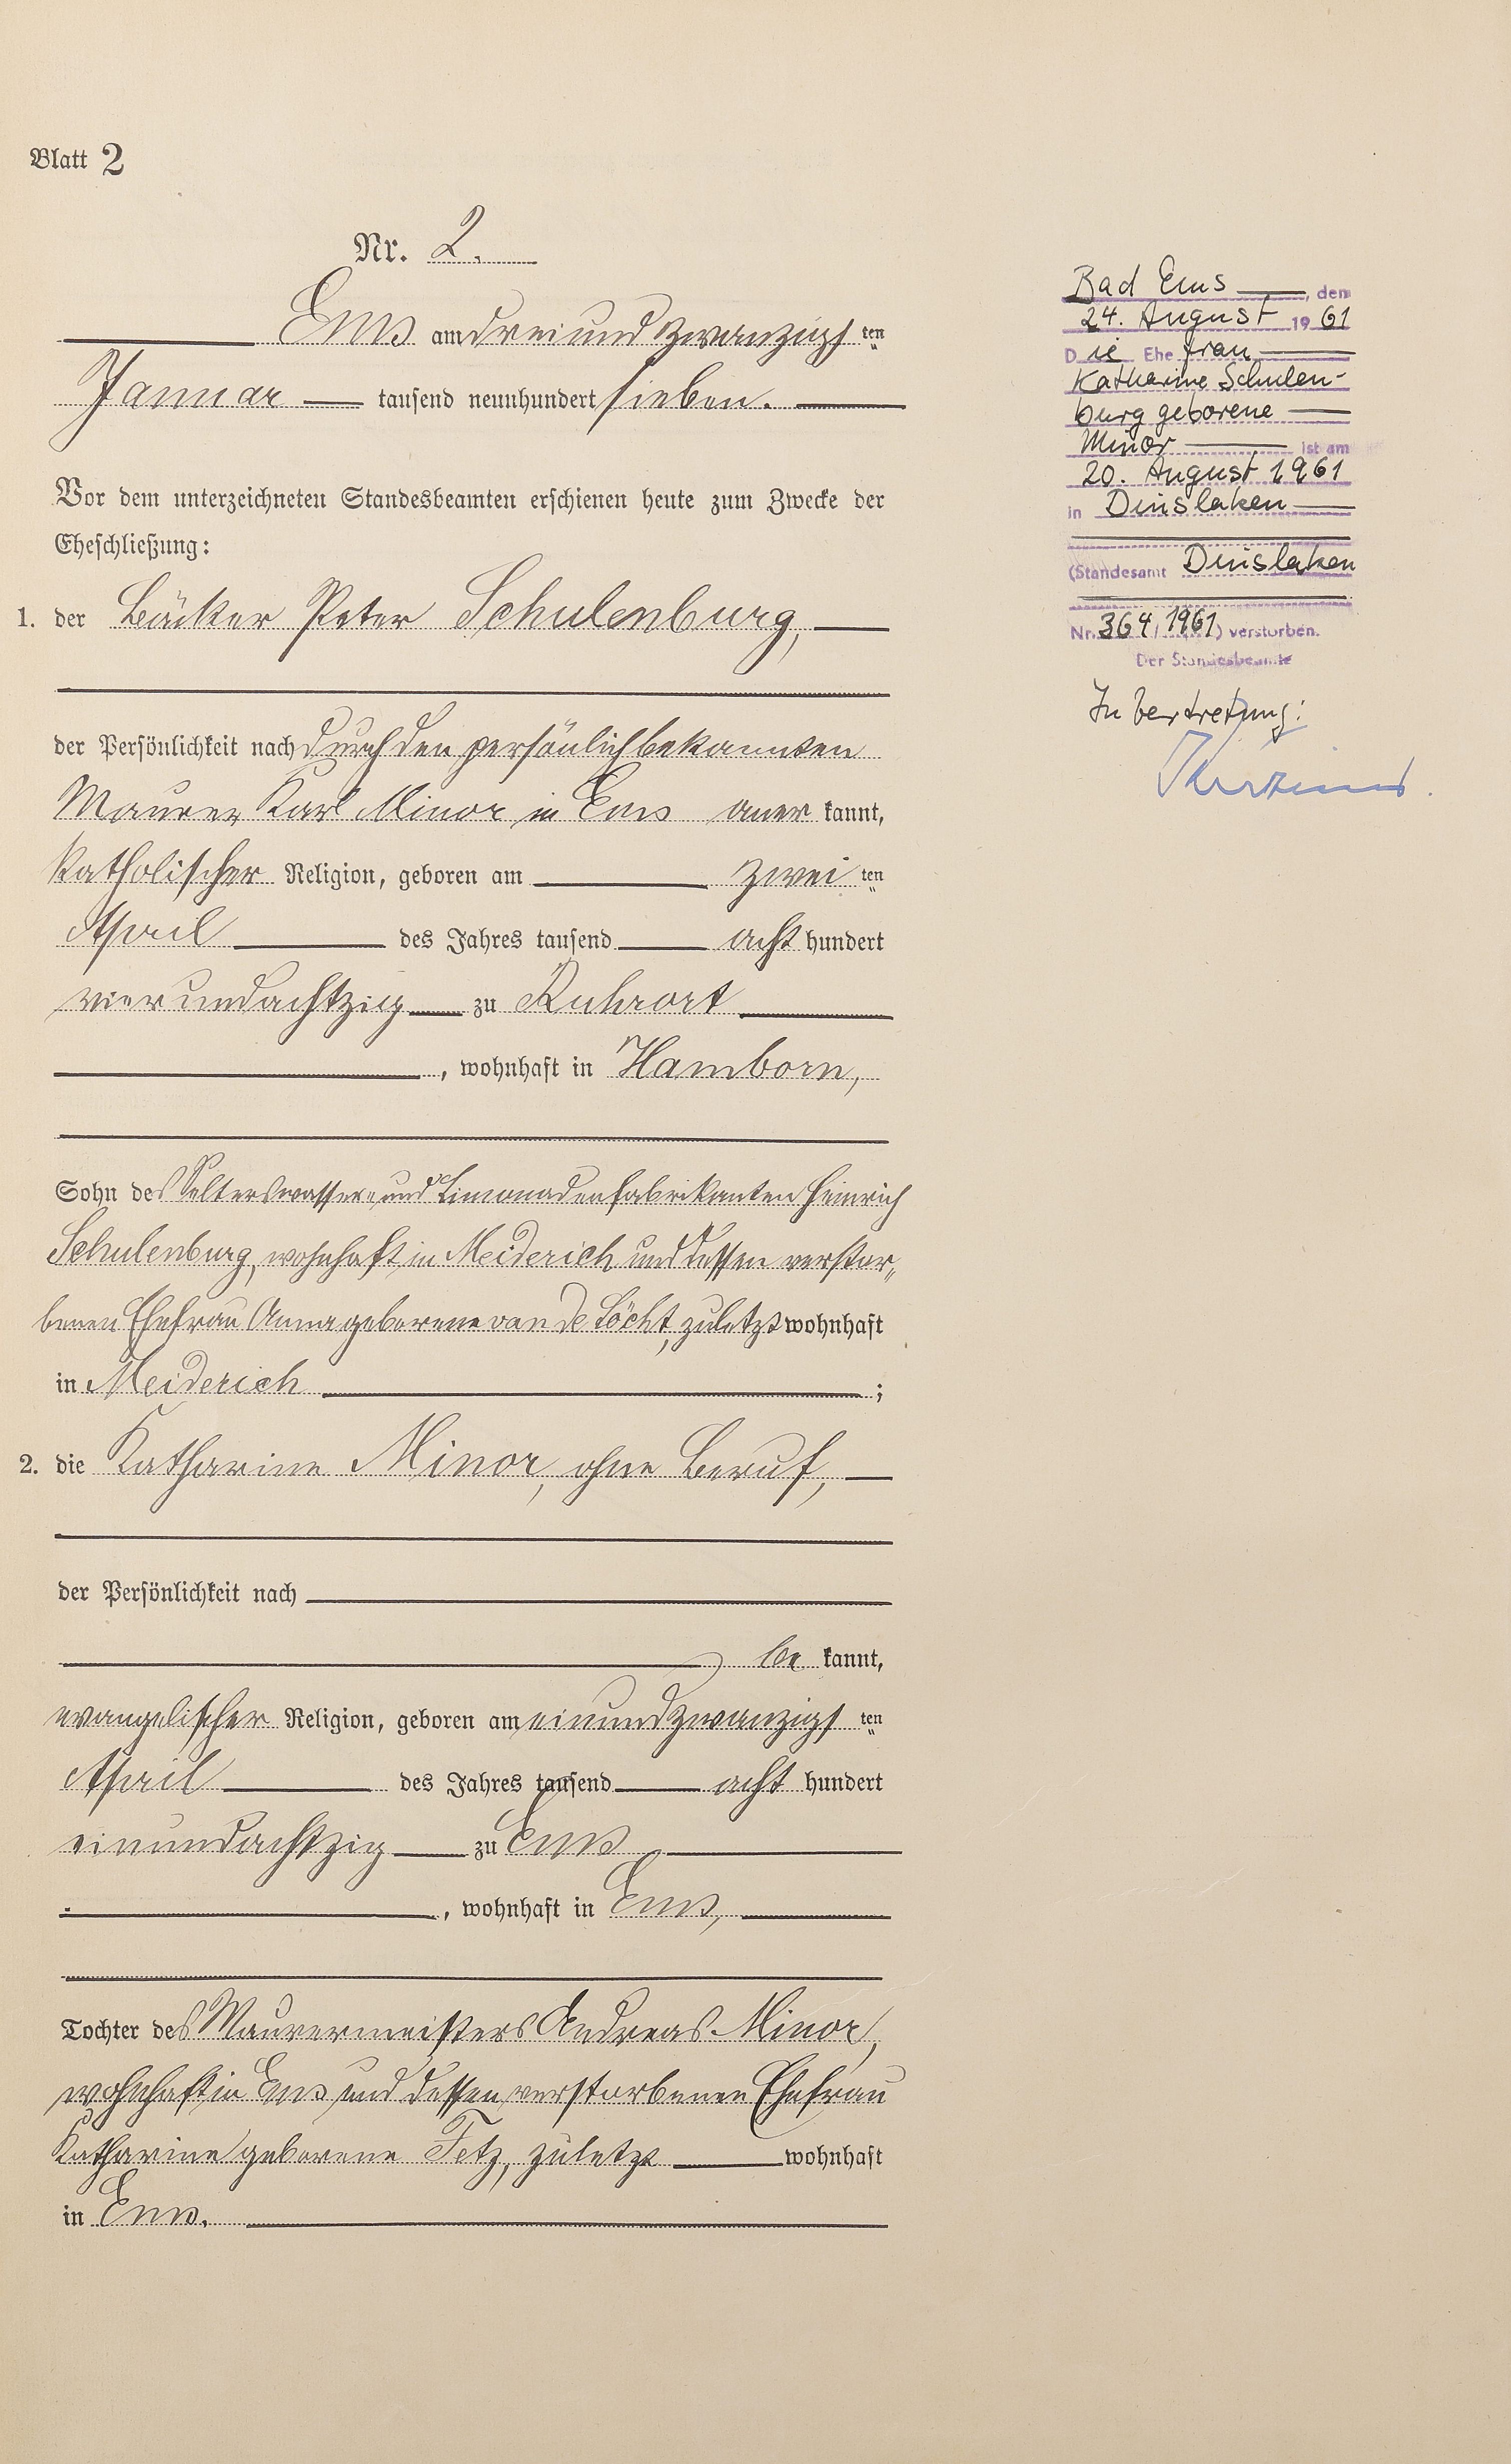 Blatt 2
Nr. 2.
Ems am dreiundzwanzigsten
Januar tausend neunhundert sieben.
Vor dem unterzeichneten Standesbeamten erschienen heute zum Zwecke der
Eheschließung:
1. der Bäcker Peter Schulenburg,
der Persönlichkeit nach durch den persönlich bekannten
Maurer Karl Minor in Ems aner kannt,
katholischer Religion, geboren am zweiten
April des Jahres tausend acht hundert
vierundachtzig zu Ruhrort
, wohnhaft in Hamborn,
Sohn des Selterswasser- und Limonadenfabrikanten Heinrich
Schulenburg, wohnhaft in Meiderich und dessen verstor-
benen Ehefrau Anna geborene van de Löcht, zuletzt wohnhaft
in Meiderich ;
2. die Katharine Minor, ohne Beruf,
der Persönlichkeit nach
be kannt,
evangelischer Religion, geboren am einundzwanzigsten
April des Jahres tausend acht hundert
einundachtzig zu Ems
, wohnhaft in Ems,
Tochter des Maurermeisters Andreas Minor,
wohnhaft in Ems und dessen verstorbenen Ehefrau
Katharine geborene Fetz, zuletzt wohnhaft
in Ems.
Bad Ems, den
24. August 1961
Die Ehefrau
Katharine Schulen-
burg geborene
Minor ist am
20. August 1961
in Dinslaken
(Standesamt Dinslaken
Nr. 364/1961) verstorben.
Der Standesbeamte
In Vertretung: